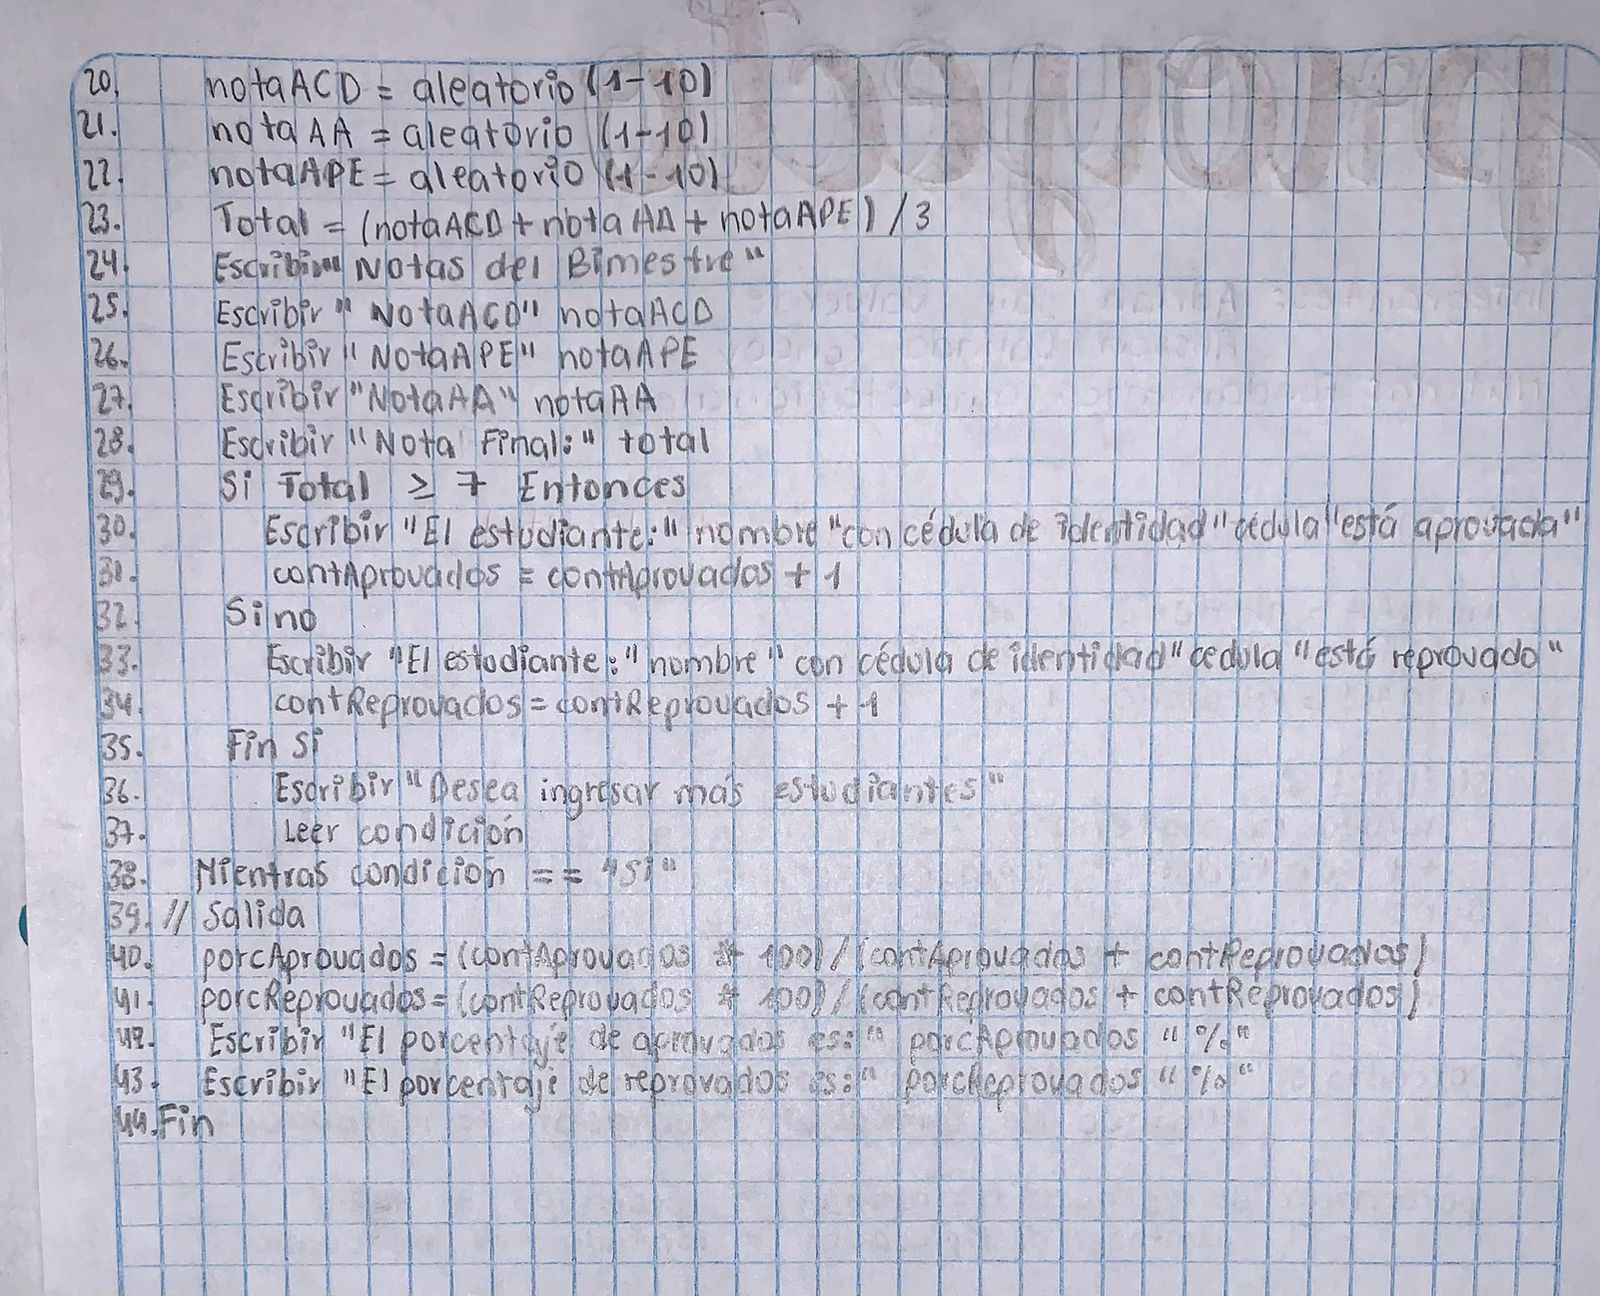 20. notaACD = aleatorio (1-10)
21. notaAA = aleatorio (1-10)
22. notaAPE = aleatorio (1-10)
23. Total = (notaACD + notaAA + notaAPE) / 3
24. Escribir " Notas del Bimestre "
25. Escribir " NotaACD" notaACD
26. Escribir " NotaAPE" notaAPE
27. Escribir "NotaAA" notaAA
28. Escribir "Nota Final:" total
29. Si Total ≥ 7 Entonces
30. Escribir "El estudiante:" nombre "con cédula de identidad" cédula "está aprovada"
31. contAprovados = contAprovados + 1
32. Si no
33. Escribir "El estudiante:" nombre" con cédula de identidad" cedula "está reprovado"
34. contReprovados = contReprovados + 1
35. Fin Si
36. Escribir "Desea ingresar más estudiantes"
37. Leer condición
38. Mientras condición == "Si"
39. // Salida
40. porcAprovados = (contAprovados * 100) / (contAprovados + contReprovados)
41. porcReprovados = (contReprovados * 100) / (contReprovados + contReprovados)
42. Escribir "El porcentaje de aprovados es:" porcAprovados "%"
43. Escribir "El porcentaje de reprovados es:" porcReprovados "%"
44. Fin